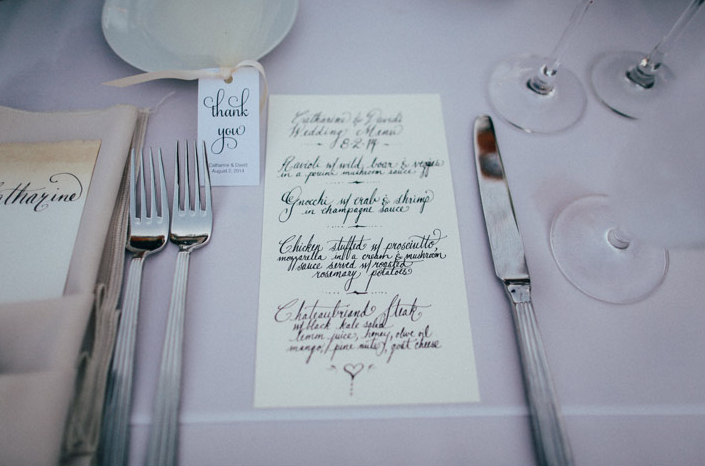 thank
you
Catharine & David
August 2, 2014
Catharine
Catharine & David's
Wedding Menu
8.2.14
Ravioli w/ wild boar & veggies
in a porcini mushroom sauce
Gnocchi w/ crab & shrimp
in champagne sauce
Chicken stuffed w/ prosciutto,
mozzarella in a cream & mushroom
sauce served w/ roasted
rosemary potatoes
Chateaubriand Steak
w/ black kale salad
lemon juice, honey, olive oil
mango, pine nuts, goat cheese